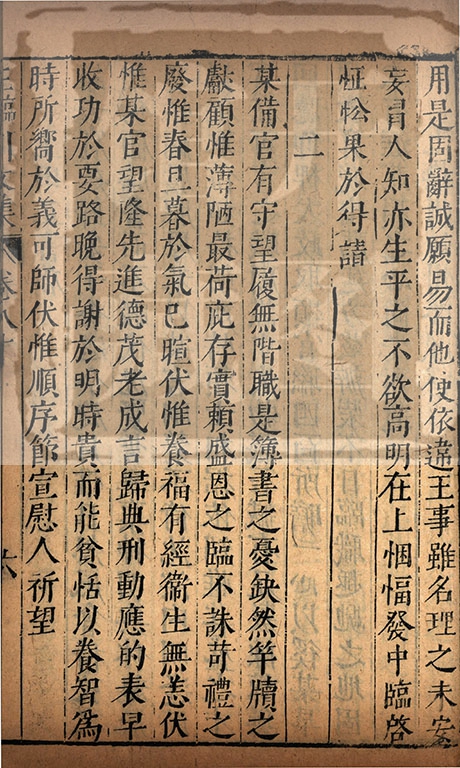 用是固辭誠願易而他使依違王事雖名理之未安
妄冐人知亦生平之不欲高明在上悃愊發中臨啓
怔忪果於得請
二
某備官有守望履無階職是簿書之憂缺然竿牘之
獻顧惟薄陋最荷庇存實賴盛恩之臨不誅苛禮之
廢惟春旦暮於氣已暄伏惟養福有經衞生無恙伏
惟某官望隆先進德茂老成言歸典刑動應的表早
收功於要路晚得謝於明時貴而能貧恬以養智為
時所嚮於義可師伏惟順序節宣慰人祈望
王臨川文集 卷八十 六